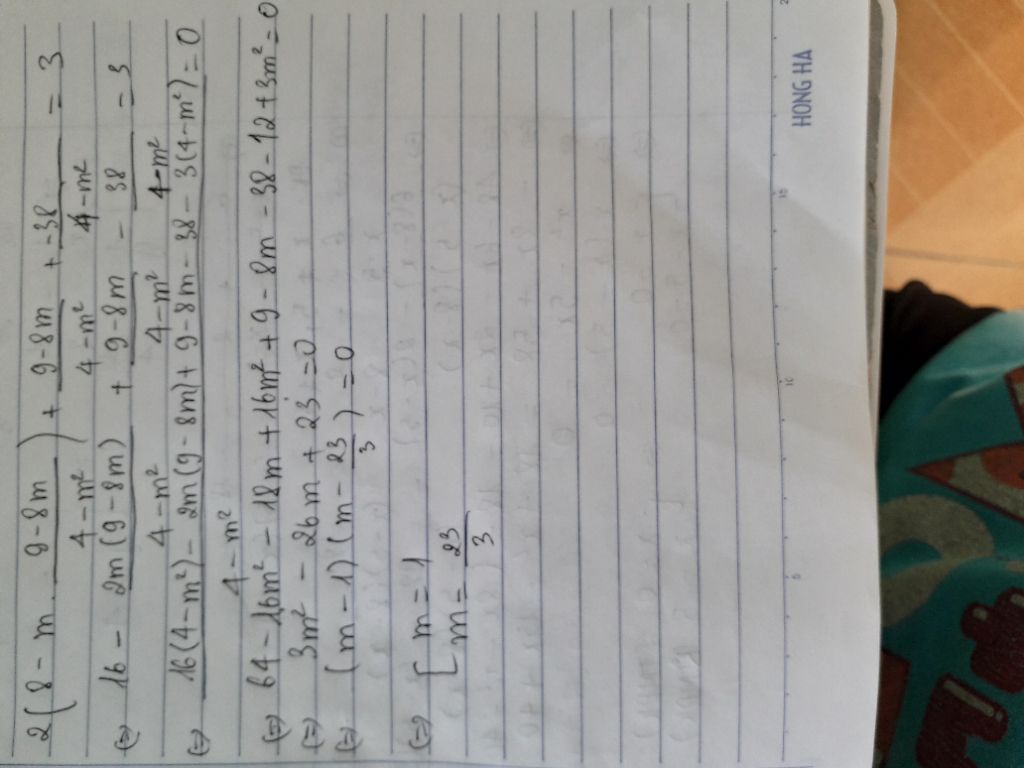 2(8 - m. (9-8m)/(4-m²)) + (9-8m)/(4-m²) + (-38)/(4-m²) = 3
(=) 16 - 2m(9-8m)/(4-m²) + (9-8m)/(4-m²) - 38/(4-m²) = 3
(=) (16(4-m²) - 2m(9-8m) + 9-8m - 38 - 3(4-m²))/(4-m²) = 0
(=) 64 - 16m² - 18m + 16m² + 9 - 8m - 38 - 12 + 3m² = 0
(=) 3m² - 26m + 23 = 0
(=) (m-1)(m - 23/3) = 0
(=) [ m = 1
[ m = 23/3
HONG HA